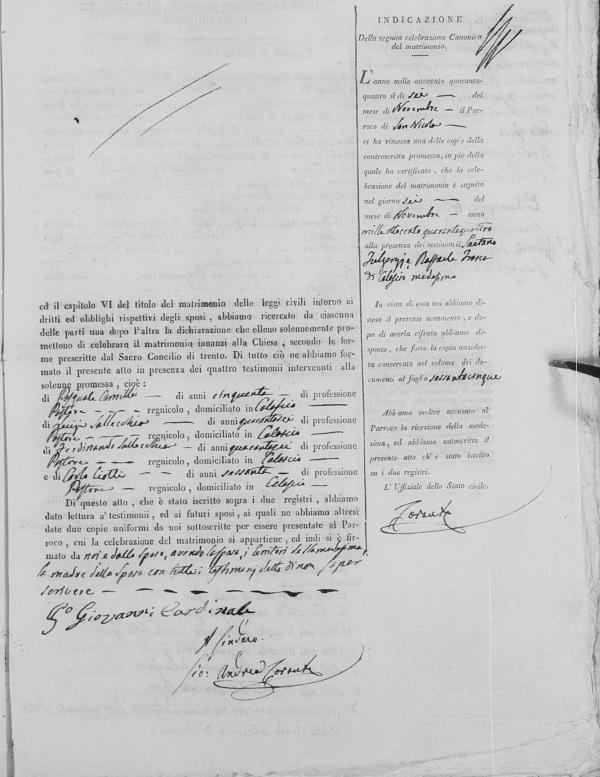 INDICAZIONE
Della seguita celebrazione Canonica
del matrimonio.
L'anno mille ottocento quaranta-
quattro il dì sei — del
mese di Novembre — il Par-
roco di San Nicola —
ci ha rimessa una delle copie della
controscritta promessa, in piè della
quale ha certificato, che la cele-
brazione del matrimonio è seguita
nel giorno sei — del
mese di Novembre — anno
mille ottocento quarantaquattro
alla presenza dei testimonii Gaetano
Raffaele
di Calascio medesimo
In vista di essa noi abbiamo di-
steso il presente notamento, e do-
po di averla cifrata abbiamo di-
sposto, che fusse la copia anzidet-
ta conservata nel volume dei do-
cumenti al foglio sessantacinque
Abbiamo inoltre accusato al
Parroco la ricezione della mede-
sima, ed abbiamo sottoscritto il
presente atto ch'è stato iscritto
su i due registri.
L'Uffiziale dello Stato civile.
ed il capitolo VI del titolo del matrimonio delle leggi civili intorno ai
dritti ed obblighi rispettivi degli sposi, abbiamo ricercato da ciascuna
delle parti una dopo l'altra la dichiarazione che elleno solennemente pro-
mettono di celebrare il matrimonio innanzi alla Chiesa, secondo le for-
me prescritte dal Sacro Concilio di trento. Di tutto ciò ne abbiamo for-
mato il presente atto in presenza dei quattro testimonii intervenuti alla
solenne promessa, cioè:
di Pasquale — di anni cinquanta — di professione
Pastore — regnicolo, domiciliato in Calascio —
di Luigi — di anni quarantasei — di professione
Pastore — regnicolo, domiciliato in Calascio —
di Ferdinando — di anni quarantasei di professione
Pastore — regnicolo, domiciliato in Calascio —
e di Carlo Ciotti — di anni sessanta — di professione
Pastore — regnicolo, domiciliato in Calascio —
Di questo atto, che è stato iscritto sopra i due registri, abbiamo
dato lettura a' testimonii, ed ai futuri sposi, ai quali ne abbiamo altresì
date due copie uniformi da noi sottoscritte per essere presentate al Par-
roco, cui la celebrazione del matrimonio si appartiene, ed indi si è fir-
mato da noi e dallo sposo, avendo la sposa, i genitori della medesima,
la madre dello sposo con tutti i testimonj detto di non saper
scrivere —
Io Giovanni Cardinale
Il Sindaco
Andrea